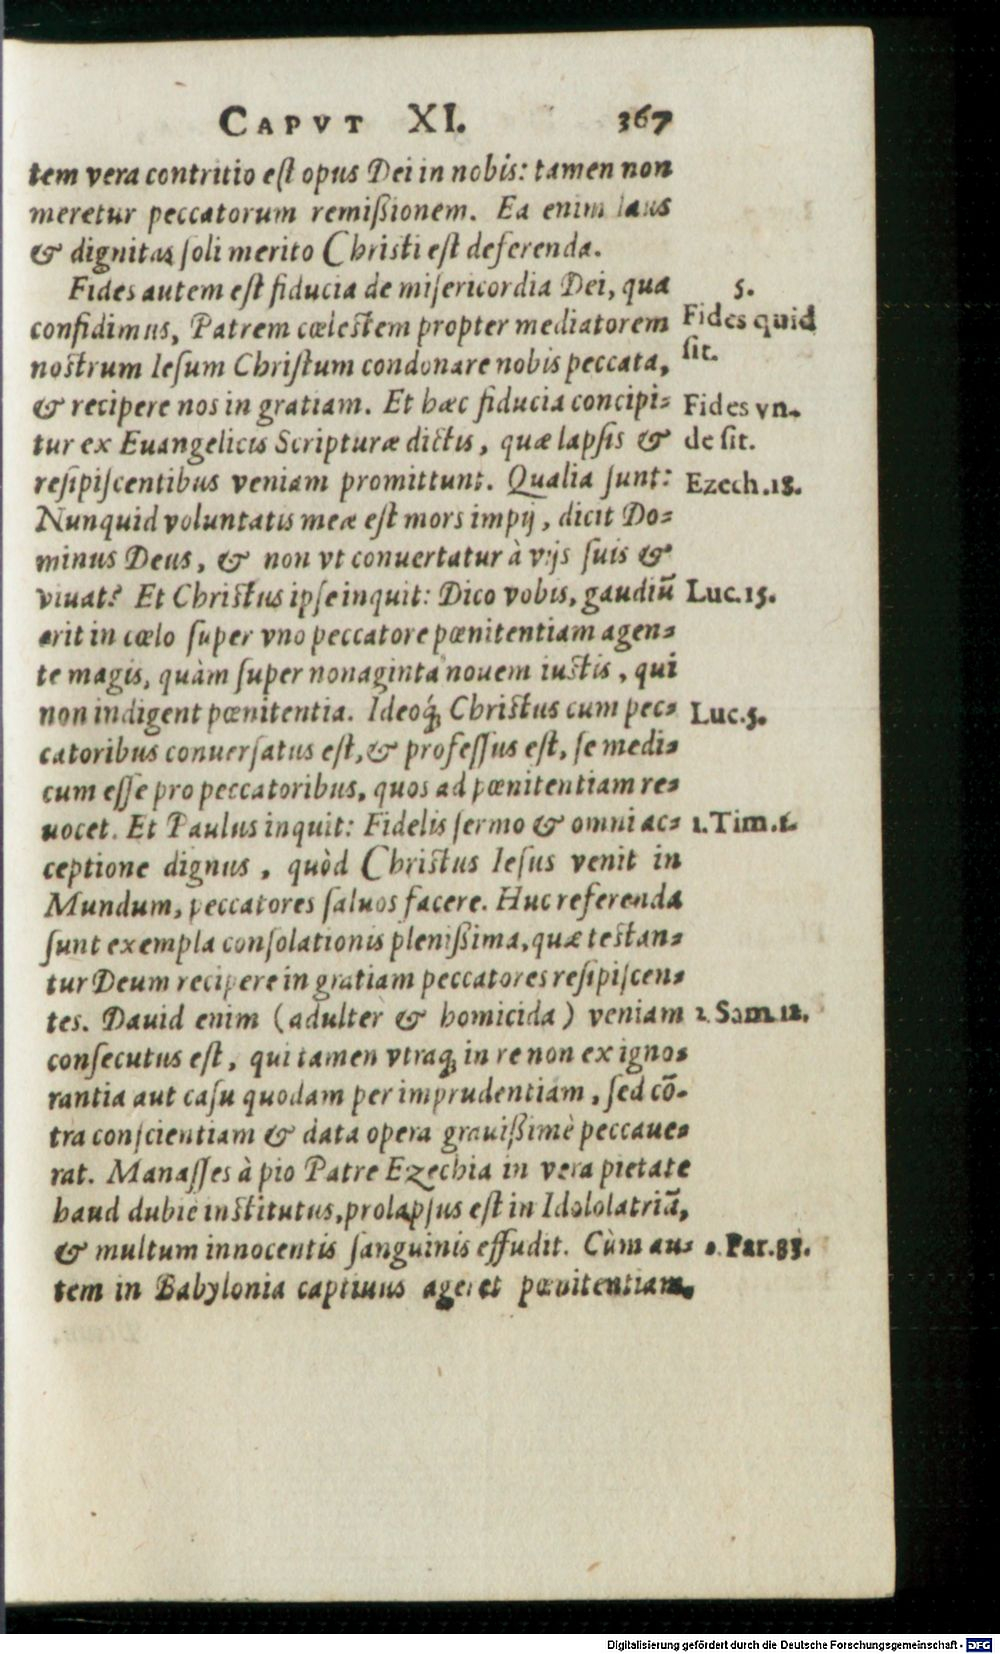 CAPVT XI. 367
tem vera contritio est opus Dei in nobis: tamen non
meretur peccatorum remißionem. Ea enim laus
& dignitas soli merito Christi est deferenda.
Fides autem est fiducia de misericordia Dei, qua
5.
confidimus, Patrem cœlestem propter mediatorem
Fides quid
sit.
nostrum Iesum Christum condonare nobis peccata,
& recipere nos in gratiam. Et hæc fiducia concipi-
Fides vn-
tur ex Euangelicis Scripturæ dictis, quæ lapsis &
de sit.
resipiscentibus veniam promittunt. Qualia sunt:
Ezech.18.
Nunquid voluntatis meæ est mors impij, dicit Do-
minus Deus, & non vt conuertatur à vijs suis &
viuat? Et Christus ipse inquit: Dico vobis, gaudiū
Luc.15.
erit in cœlo super vno peccatore pœnitentiam agen-
te magis, quàm super nonaginta nouem iustis, qui
non indigent pœnitentia. Ideoq́, Christus cum pec-
Luc.5.
catoribus conuersatus est, & professus est, se medi-
cum esse pro peccatoribus, quos ad pœnitentiam re-
uocet. Et Paulus inquit: Fidelis sermo & omni ac-
1.Tim.1.
ceptione dignus, quòd Christus Iesus venit in
Mundum, peccatores saluos facere. Huc referenda
sunt exempla consolationis plenißima, quæ testan-
tur Deum recipere in gratiam peccatores resipiscen-
tes. Dauid enim (adulter & homicida) veniam
2. Sam.12.
consecutus est, qui tamen vtraq, in re non ex igno-
rantia aut casu quodam per imprudentiam, sed cō-
tra conscientiam & data opera grauißimè peccaue-
rat. Manasses à pio Patre Ezechia in vera pietate
haud dubiè institutus, prolapsus est in Idololatriā,
& multum innocentis sanguinis effudit. Cùm au-
Par.33.
tem in Babylonia captiuus ageret pœnitentiam,
Digitalisierung gefördert durch die Deutsche Forschungsgemeinschaft - DFG